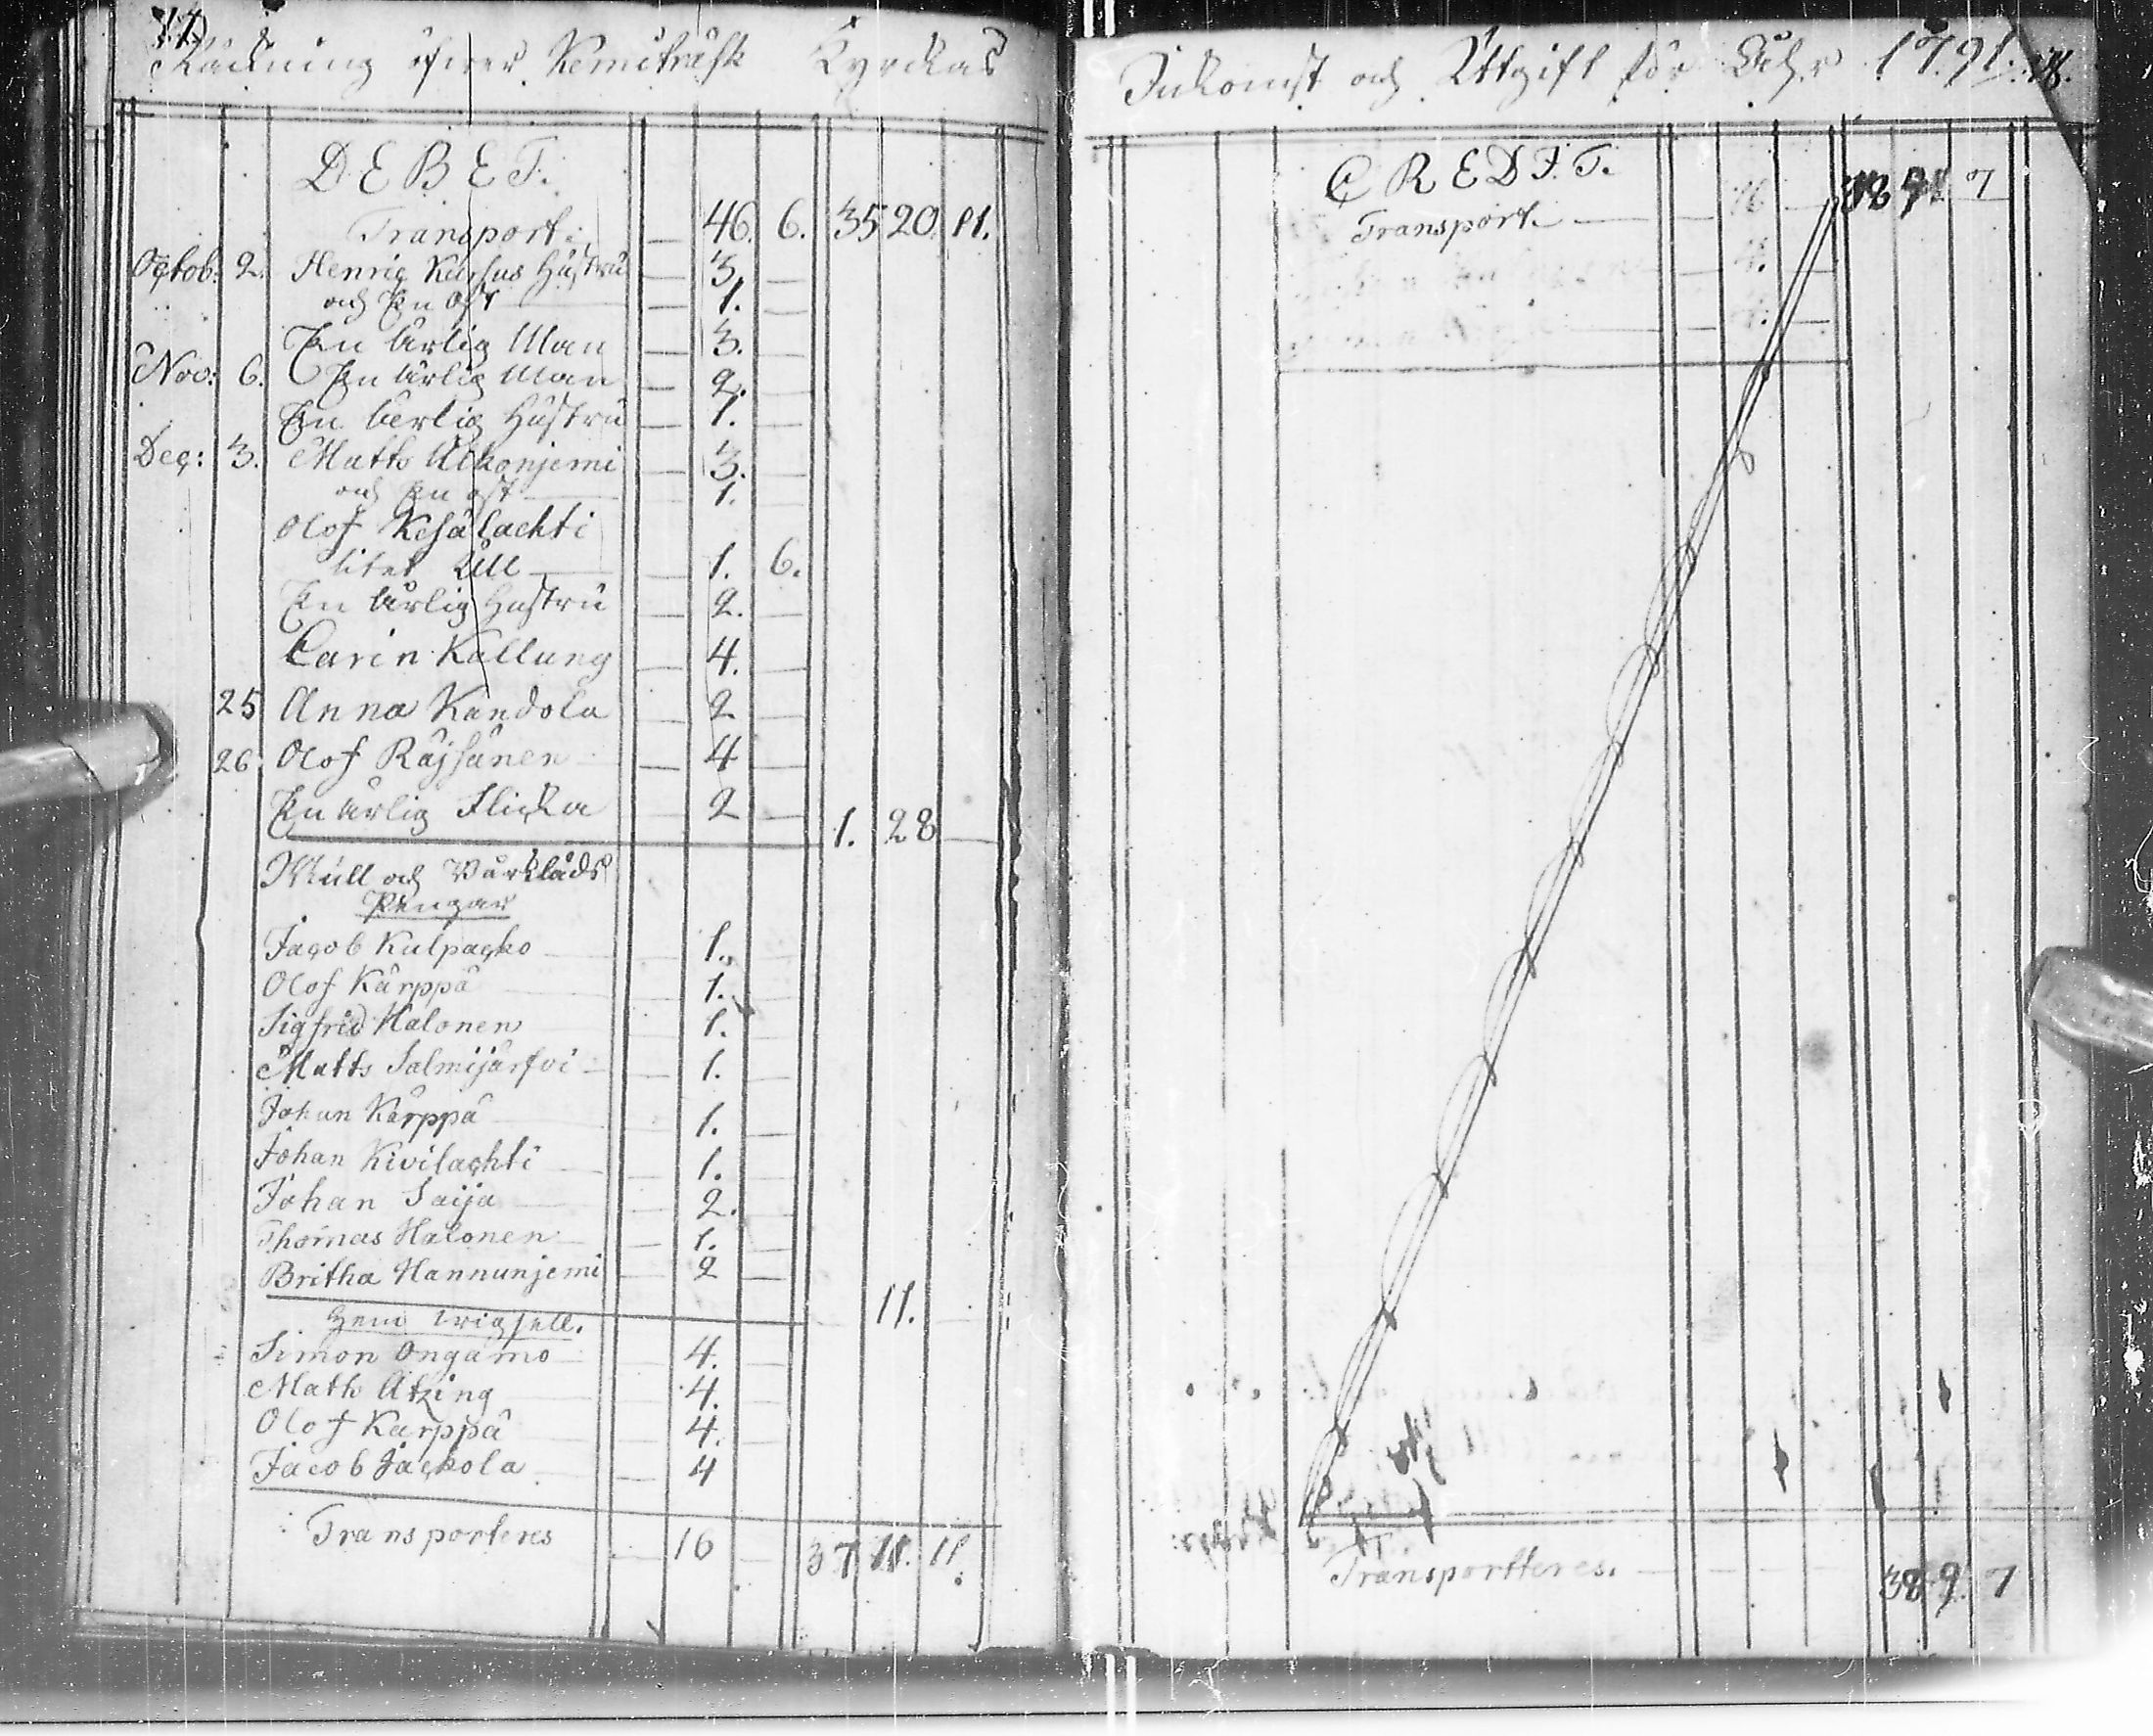 17
Räkning öfwer Kemiträsk Kyrckas
DEBET.
Transport: 46. 6. 35 20. 11.
Octob: 2. Henric Hustru 3.
och En ost 1.
En ärlig Man 3.
Nov: 6. En ärlig Man 2.
En ärlig Hustru 1.
Dec: 3. Matts Alkonjemi 3.
och En ost 1.
Olof Kesälachti
litet Ull 1. 6.
En ärlig Hustru 2.
Carin Kallung 4.
25 Anna Kandola 2
26. Olof Räjsänen 4
En ärlig Flicka 2
1. 28
Mull och Bårkläds
Pengar
Jacob Kulpacko 1.
Olof Kärppä 1.
Sigfrid Halonen 1.
Matts Salmijärfvi 1.
Johan Kärppä 1.
Johan Kivilachti 1.
Johan Saija 2.
Thomas Halonen 1.
Britha Hannunjemi 2
11.
Hem wigsell.
Simon Ongamo 4.
Matts Atzing 4.
Olof Karppä 4.
Jacob Jackola 4
Transporteres 16 37 11. 11.
Inkomst och Uttgift för Åhr 1791. 18.
CREDIT.
Transport. 38 9 7
Transportteres. 38 9. 7